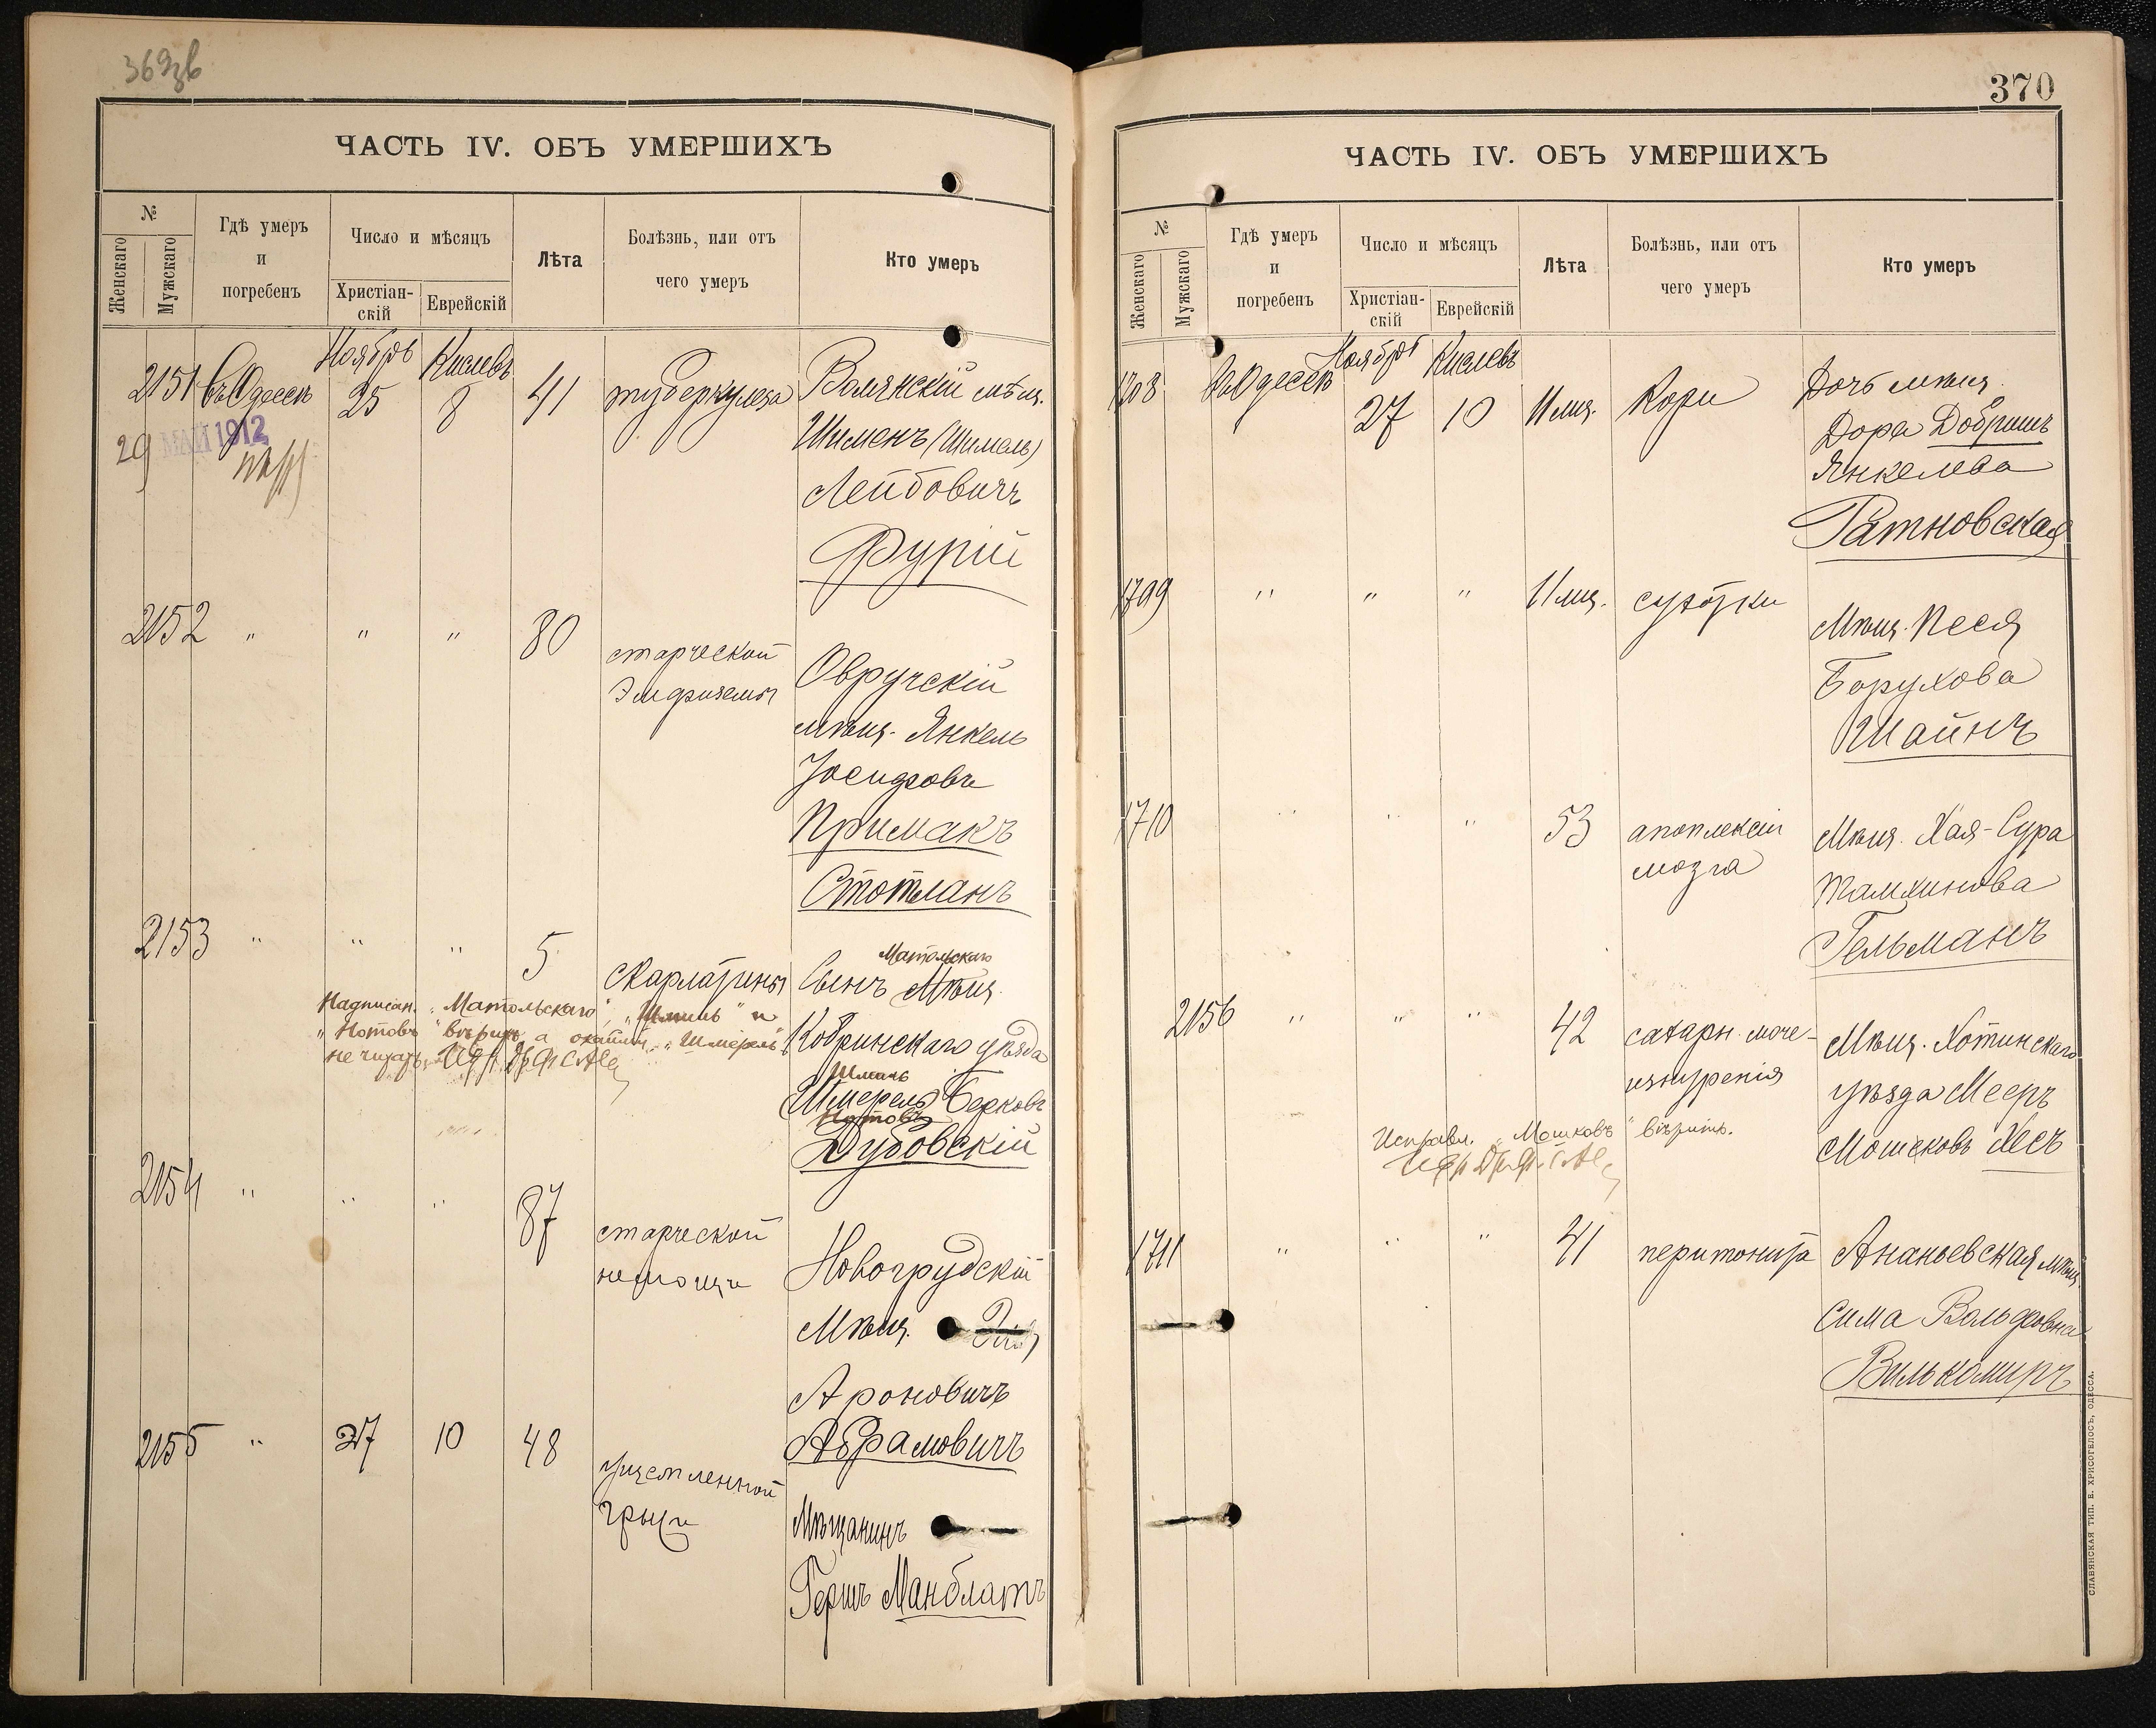 ЧАСТЬ IV. ОБЪ УМЕРШИХЪ
№
Женскаго
Мужскаго
Гдѣ умеръ
и
погребенъ
Число и мѣсяцъ
Христіан-
скій
Еврейскій
Лѣта
Болѣзнь, или отъ
чего умеръ
Кто умеръ
2151 Въ Одессѣ Ноябрь 25 Кислевъ 8 41 туберкулеза Волянскій мѣщ.
29 МАЙ 1912
Шименъ (Шималь)
Лейбовичъ
Фурій
2152 " " " 80 старческой
Эмфиземы
Овручскій
мѣщ. Янкель
Іосифовъ
Примакъ
Стотланъ
2153 " " " 5 скарлатины Сынъ Мѣщ.
Матольскаго
Надписан. "Матольскаго", "Шмиль" и
"Нотовъ" вѣрить, а "Шмерель"
не читать
Кобринскаго уѣзда
Шмиль
Шмерель Берковъ
Нотовъ
Дубовскій
2154 " " " 87 старческой
немощи
Новогрудскій
Мѣщ.
Ароновичъ
Абрамовичъ
2155 " 27 10 48 ущемленной
грыжи
Мѣщанинъ
Гершъ Манблатъ
370
ЧАСТЬ IV. ОБЪ УМЕРШИХЪ
№
Женскаго
Мужскаго
Гдѣ умеръ
и
погребенъ
Число и мѣсяцъ
Христіан-
скій
Еврейскій
Лѣта
Болѣзнь, или отъ
чего умеръ
Кто умеръ
1708 Въ Одессѣ Ноябрь 27 Кислевъ 10 11 мѣс. Кори Дочь мѣщ.
Дора Добришъ
Янкелева
Ратновская
1709 " " " 11 мѣс. сухотки Мѣщ. Песя
Борухова
Шайнъ
1710 " " " 53 апоплексіи
мозга
Мѣщ. Хая-Сура
Танхинова
Гельманъ
2156 " " " 42 сахарн. моче-
изнуренія
Мѣщ. Хотинскаго
уѣзда Мееръ
Мошковъ Хесъ
Исправл. "Мошковъ" вѣрить.
1711 " " " 41 перитонита Ананьевская мѣщ.
Сима Вольфовна
Вилькомиръ
СЛАВЯНСКАЯ ТИП. Е. ХРИСОГЕЛОСЪ, ОДЕССА.